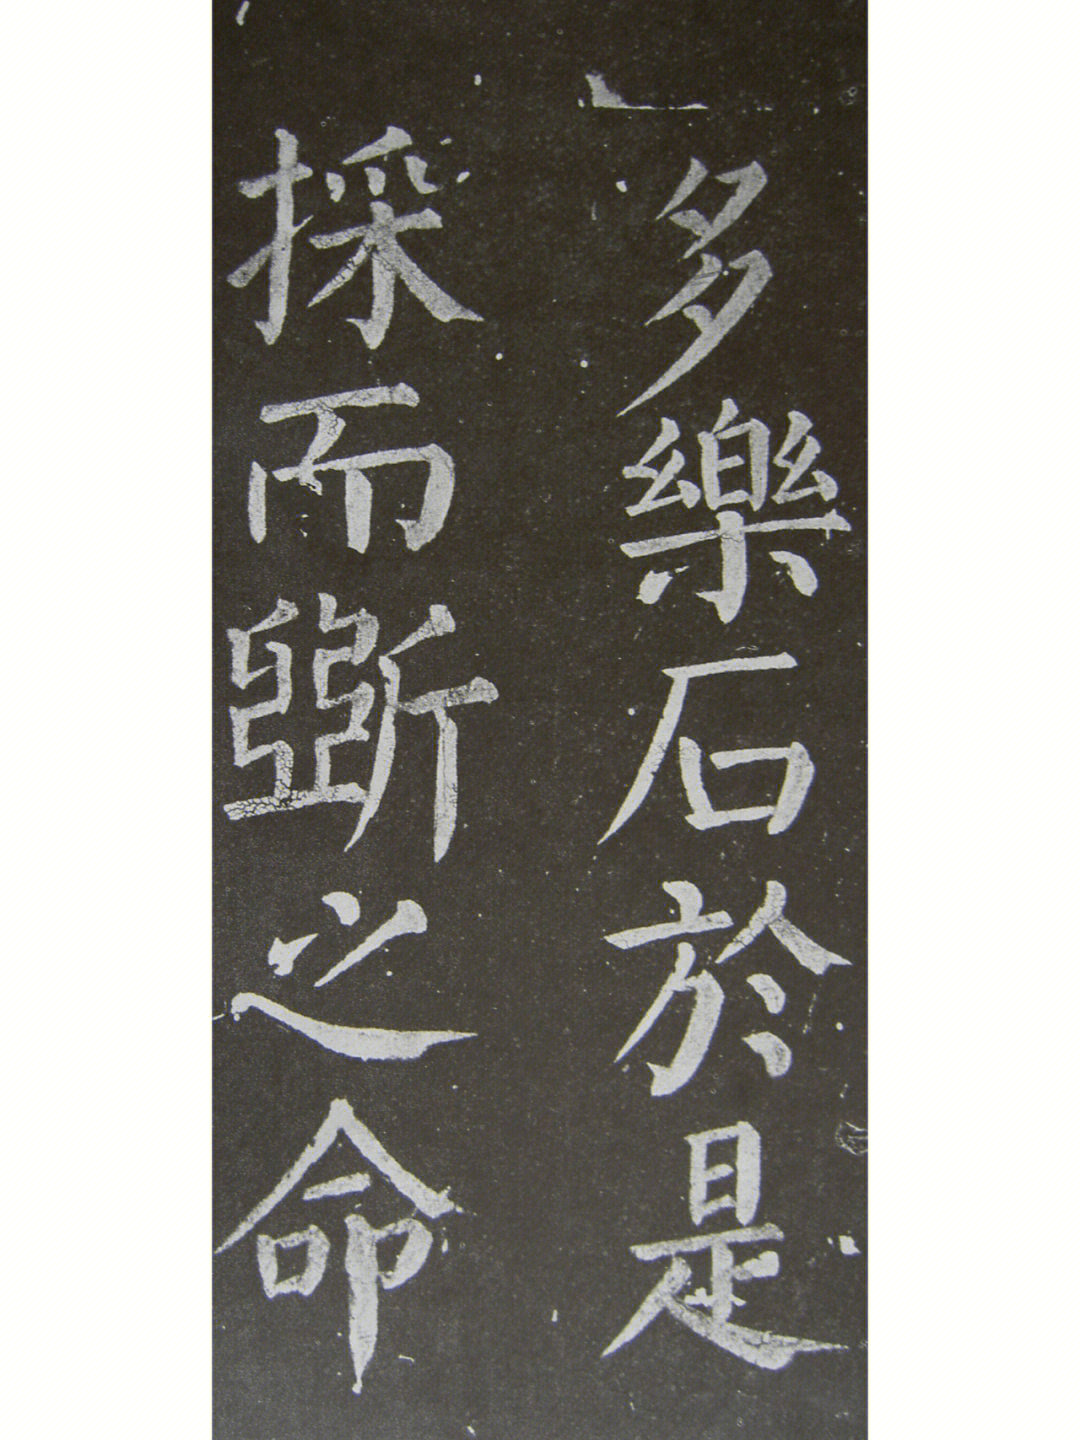 多樂石於是
採而斲之命